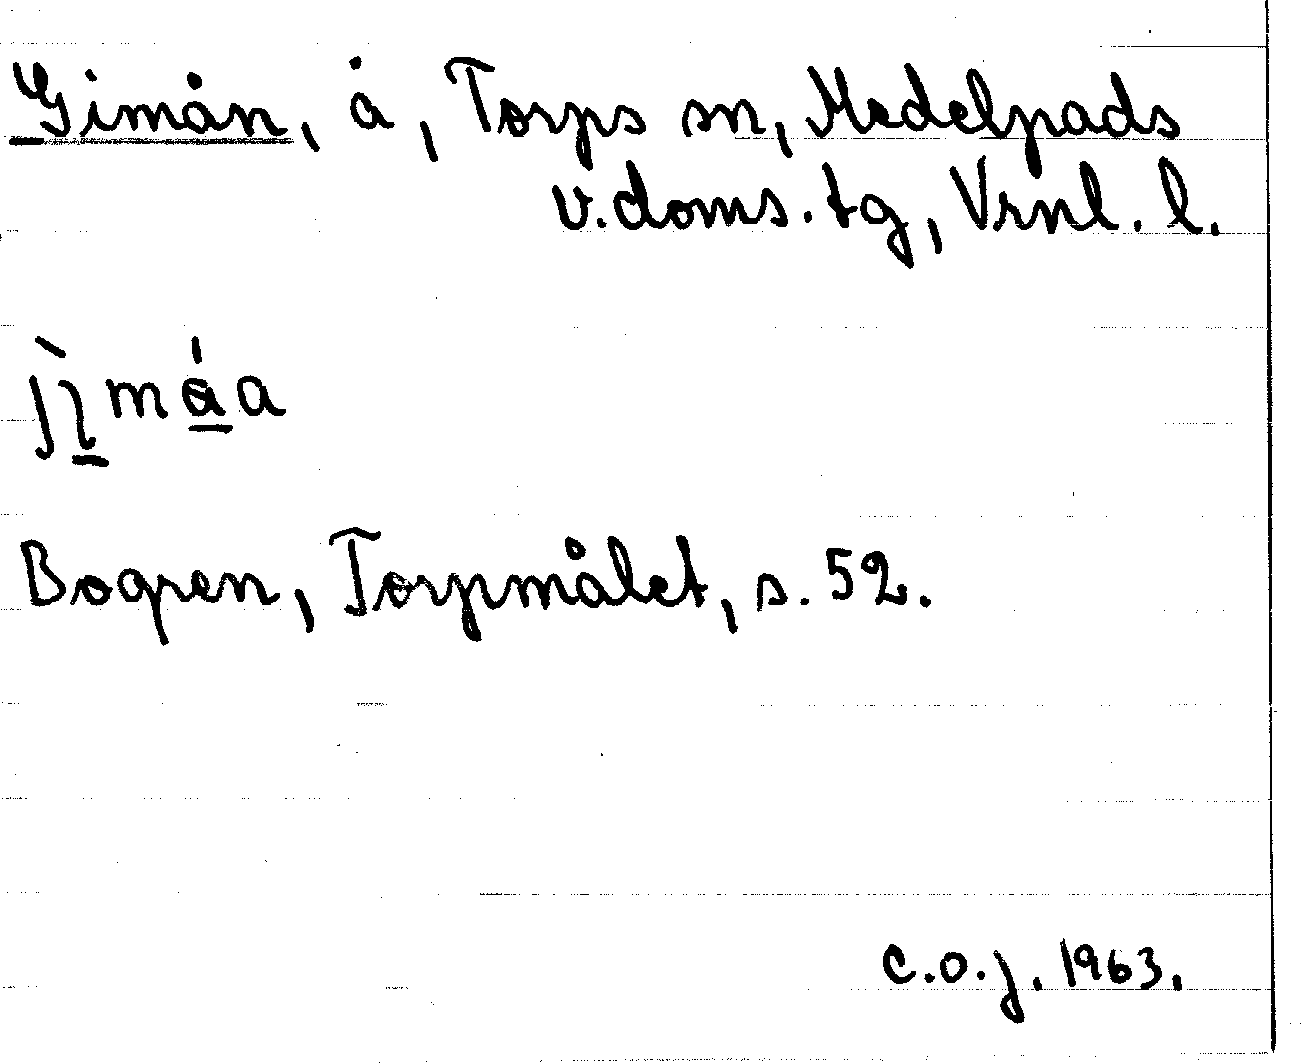 Gimån, å, Torps sn, Medelpads
v.doms.tg, Vrnl. l.
Bogren, Torpmålet, s. 52.
C.O.J. 1963.